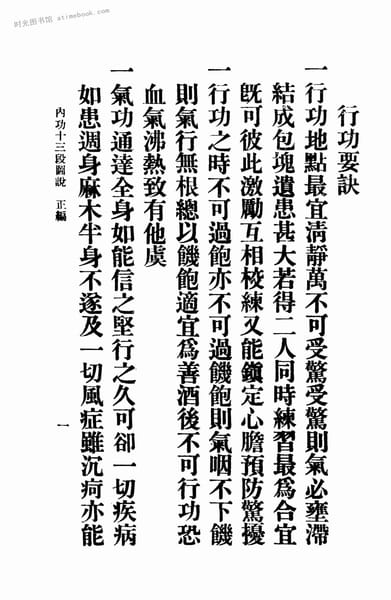 时光图书馆 atimebook.com
行功要訣
一行功地點最宜清靜萬不可受驚受驚則氣必壅滯
結成包塊遺患甚大若得二人同時練習最爲合宜
旣可彼此激勵互相校練又能鎮定心膽預防驚擾
一行功之時不可過飽亦不可過饑飽則氣咽不下饑
則氣行無根總以饑飽適宜爲善酒後不可行功恐
血氣沸熱致有他虞
一氣功通達全身如能信之堅行之久可卻一切疾病
如患週身麻木半身不遂及一切風症雖沉疴亦能
內功十三段圖說 正編 一